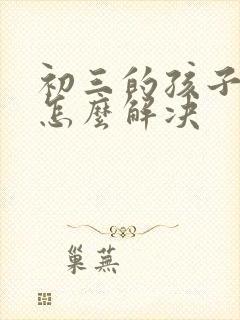 初三的孩子
怎麼解决
巢蕪